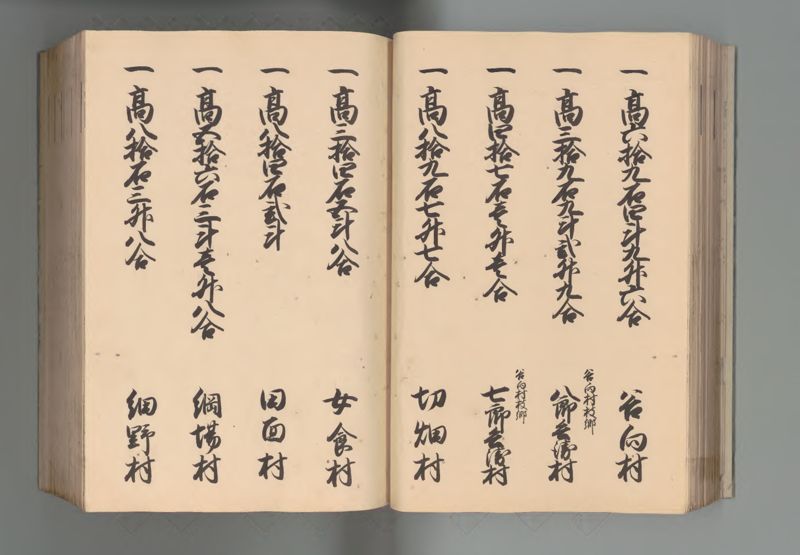 一高六拾九石四斗九升六合 谷向村
一高三拾九石九斗弐升九合 谷向村枝郷 八郎兵衛村
一高四拾七石壱升壱合 谷向村枝郷 七郎兵衛村
一高八拾九石七升七合 切畑村
一高三拾四石五斗八合 女食村
一高八拾四石弐斗 田面村
一高五拾六石三斗壱升八合 綱場村
一高八拾石三升八合 細野村